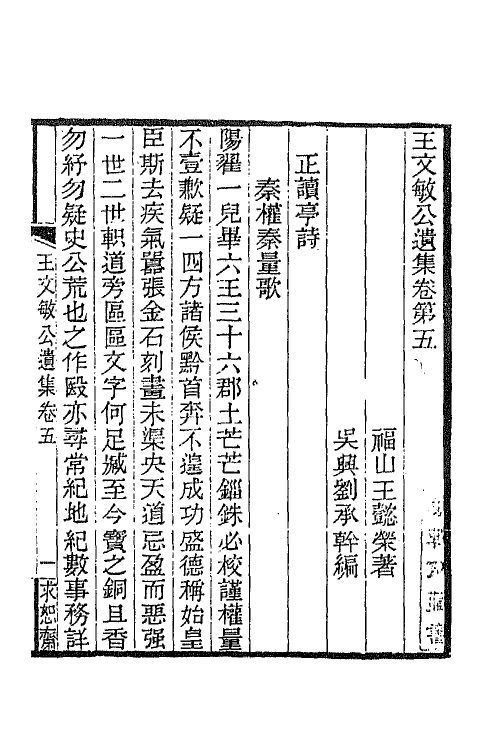 王文敏公遺集卷第五
福山王懿榮著
吳興劉承幹編
正讀亭詩
秦權秦量歌
陽翟一兒畢六王三十六郡土芒芒錙銖必校謹權量
不壹歉疑一四方諸侯黔首奔不遑成功盛德稱始皇
臣斯去疾氣囂張金石刻畫未渠央天道忌盈而惡强
一世二世軹道旁區區文字何足臧至今寶之銅且香
勿紓勿疑史公荒也之作殹亦尋常紀地紀數事務詳
王文敏公遺集卷五
一
求恕齋